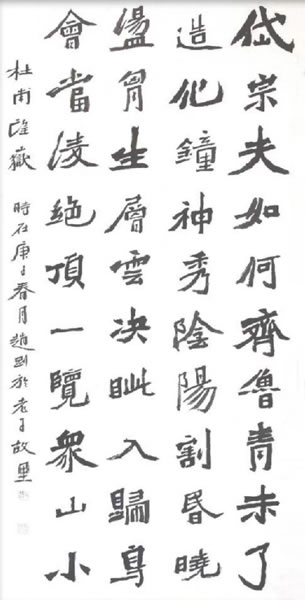 岱宗夫如何齊魯青未了
造化鐘神秀陰陽割昏曉
盪胷生層雲决眦入歸鳥
會當淩絕頂一覽衆山小
杜甫望嶽 時在庚子春月趙於老子故里